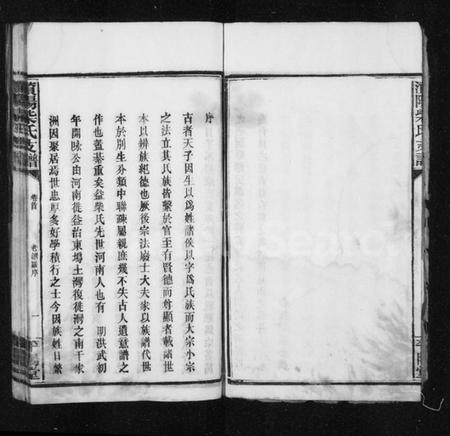 序
古者天子因生以爲姓諸侯以字爲氏族而大宗小宗
之法立其氏族皆繫於官至有賢德而尊顯者載諸世
本以辨族紀德也厥後宗法廢士大夫家以族譜代世
本於別生分類中聯疎屬親庶幾不失古人遺意譜之
作也蓋綦重矣益柴氏先世河南人也有 明洪武初
年開 公由河南徙益治東塢土灣復徙灣之南千家
洲因聚居焉世忠厚多好學積行之士今因族姓日繁
卷首 老譜 序 一
柴氏支譜
柴氏支譜